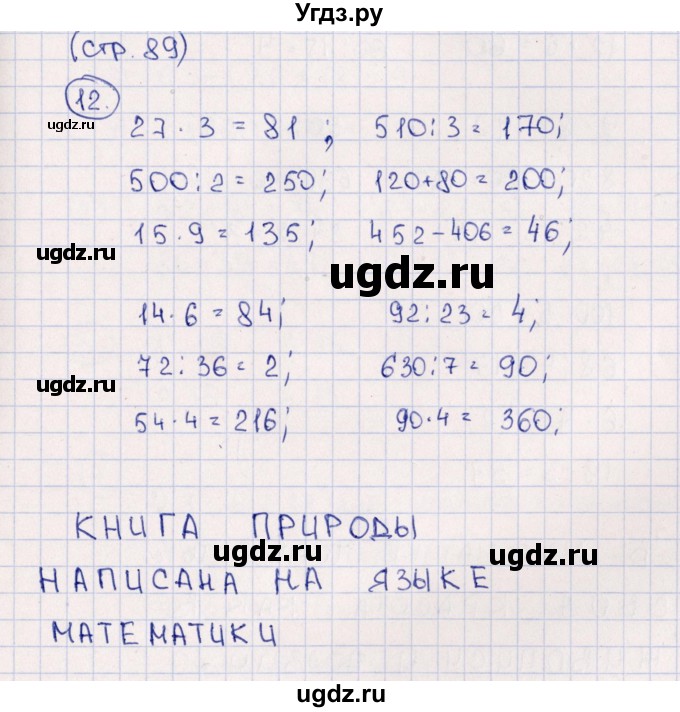 Угдз.ру
(стр. 89)
12.
ugdz.ru
27 · 3 = 81 ; 510 : 3 = 170;
500 : 2 = 250; 120+80 = 200;
15 · 9 = 135; 452-406 = 46;
ugdz.ru
ugdz.ru
14 · 6 = 84; 92 : 23 = 4;
72 : 36 = 2; 630 : 7 = 90;
ugdz.ru
54 · 4 = 216; 90 · 4 = 360;
КНИГА ПРИРОДЫ
ugdz.ru ugdz.ru
НАПИСАНА НА ЯЗЫКЕ
МАТЕМАТИКИ
ugdz.ru